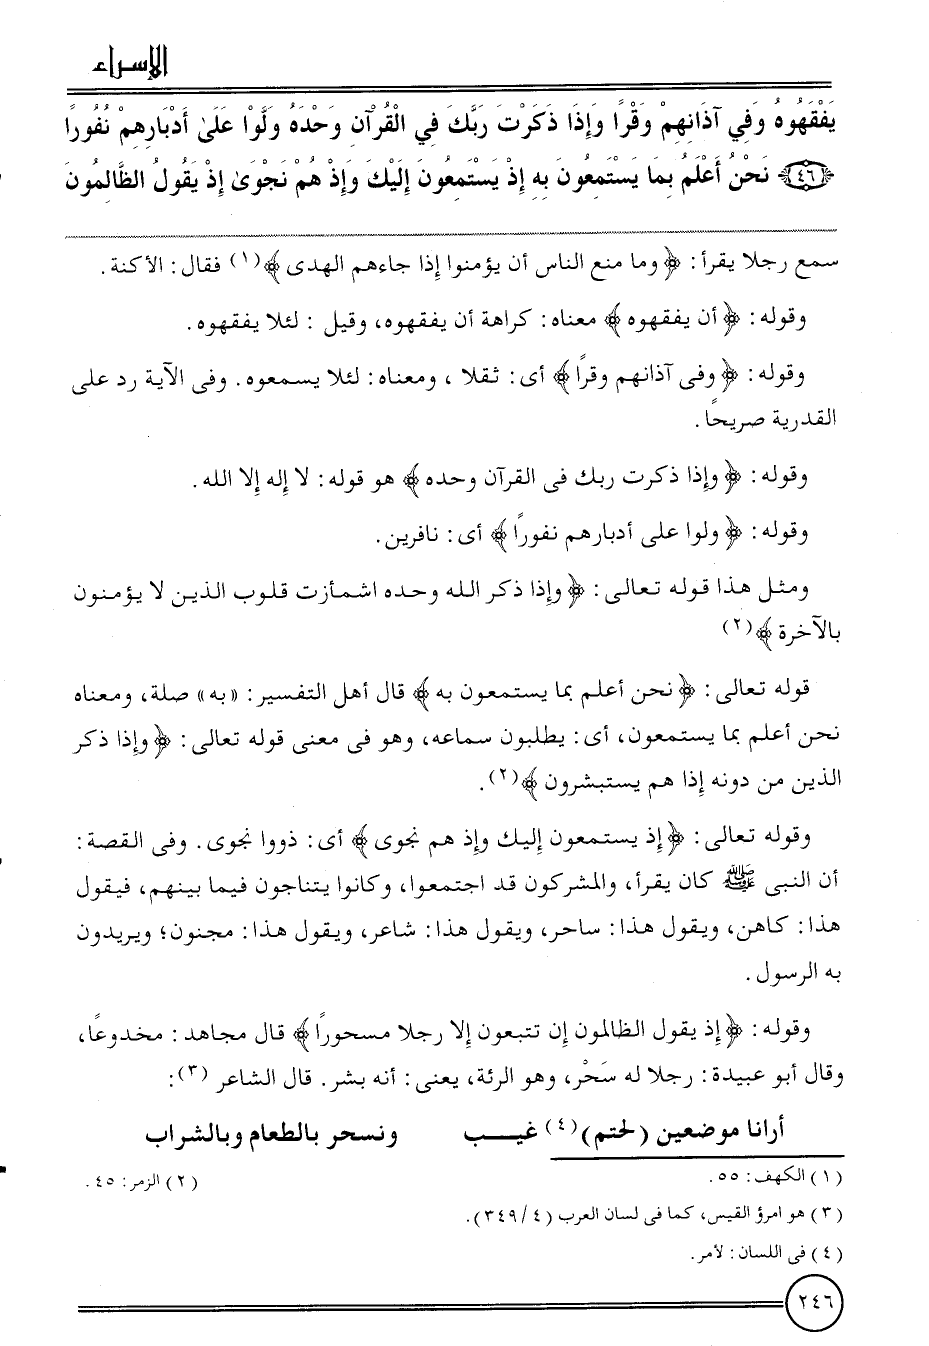 الإسراء
يَفْقَهُوهُ وَفِي آذَانِهِمْ وَقْرًا وَإِذَا ذَكَرْتَ رَبَّكَ فِي الْقُرْآنِ وَحْدَهُ وَلَّوْا عَلَىٰ أَدْبَارِهِمْ نُفُورًا
﴿٤٦﴾ نَحْنُ أَعْلَمُ بِمَا يَسْتَمِعُونَ بِهِ إِذْ يَسْتَمِعُونَ إِلَيْكَ وَإِذْ هُمْ نَجْوَىٰ إِذْ يَقُولُ الظَّالِمُونَ
سمع رجلا يقرأ: ﴿ وما منع الناس أن يؤمنوا إذا جاءهم الهدى ﴾(١) فقال: الأكنة.
وقوله: ﴿ أن يفقهوه ﴾ معناه: كراهة أن يفقهوه، وقيل : لئلا يفقهوه.
وقوله: ﴿ وفى آذانهم وقرًا ﴾ أى: ثقلا ، ومعناه: لئلا يسمعوه. وفى الآية رد على
القدرية صريحًا.
وقوله: ﴿ وإذا ذكرت ربك فى القرآن وحده ﴾ هو قوله: لا إله إلا الله.
وقوله: ﴿ ولوا على أدبارهم نفورًا ﴾ أى: نافرين.
ومثل هذا قوله تعالى: ﴿ وإذا ذكر الله وحده اشمأزت قلوب الذين لا يؤمنون
بالآخرة ﴾(٢)
قوله تعالى: ﴿ نحن أعلم بما يستمعون به ﴾ قال أهل التفسير: «به» صلة، ومعناه
نحن أعلم بما يستمعون، أى: يطلبون سماعه، وهو فى معنى قوله تعالى: ﴿ وإذا ذكر
الذين من دونه إذا هم يستبشرون ﴾(٢).
وقوله تعالى: ﴿ إذ يستمعون إليك وإذ هم نجوى ﴾ أى: ذووا نجوى. وفى القصة:
أن النبى ﷺ كان يقرأ، والمشركون قد اجتمعوا، وكانوا يتناجون فيما بينهم، فيقول
هذا: كاهن، ويقول هذا: ساحر، ويقول هذا: شاعر، ويقول هذا: مجنون؛ ويريدون
به الرسول.
وقوله: ﴿ إذ يقول الظالمون إن تتبعون إلا رجلا مسحورًا ﴾ قال مجاهد: مخدوعًا،
وقال أبو عبيدة: رجلا له سَحْر، وهو الرئة، يعنى: أنه بشر. قال الشاعر (٣):
أرانا موضعين (لحتم)(٤) غيـــب ونسحر بالطعام وبالشراب
(١) الكهف: ٥٥. (٢) الزمر: ٤٥.
(٣) هو امرؤ القيس، كما فى لسان العرب (٤/ ٣٤٩).
(٤) فى اللسان: لأمر.
٢٤٦